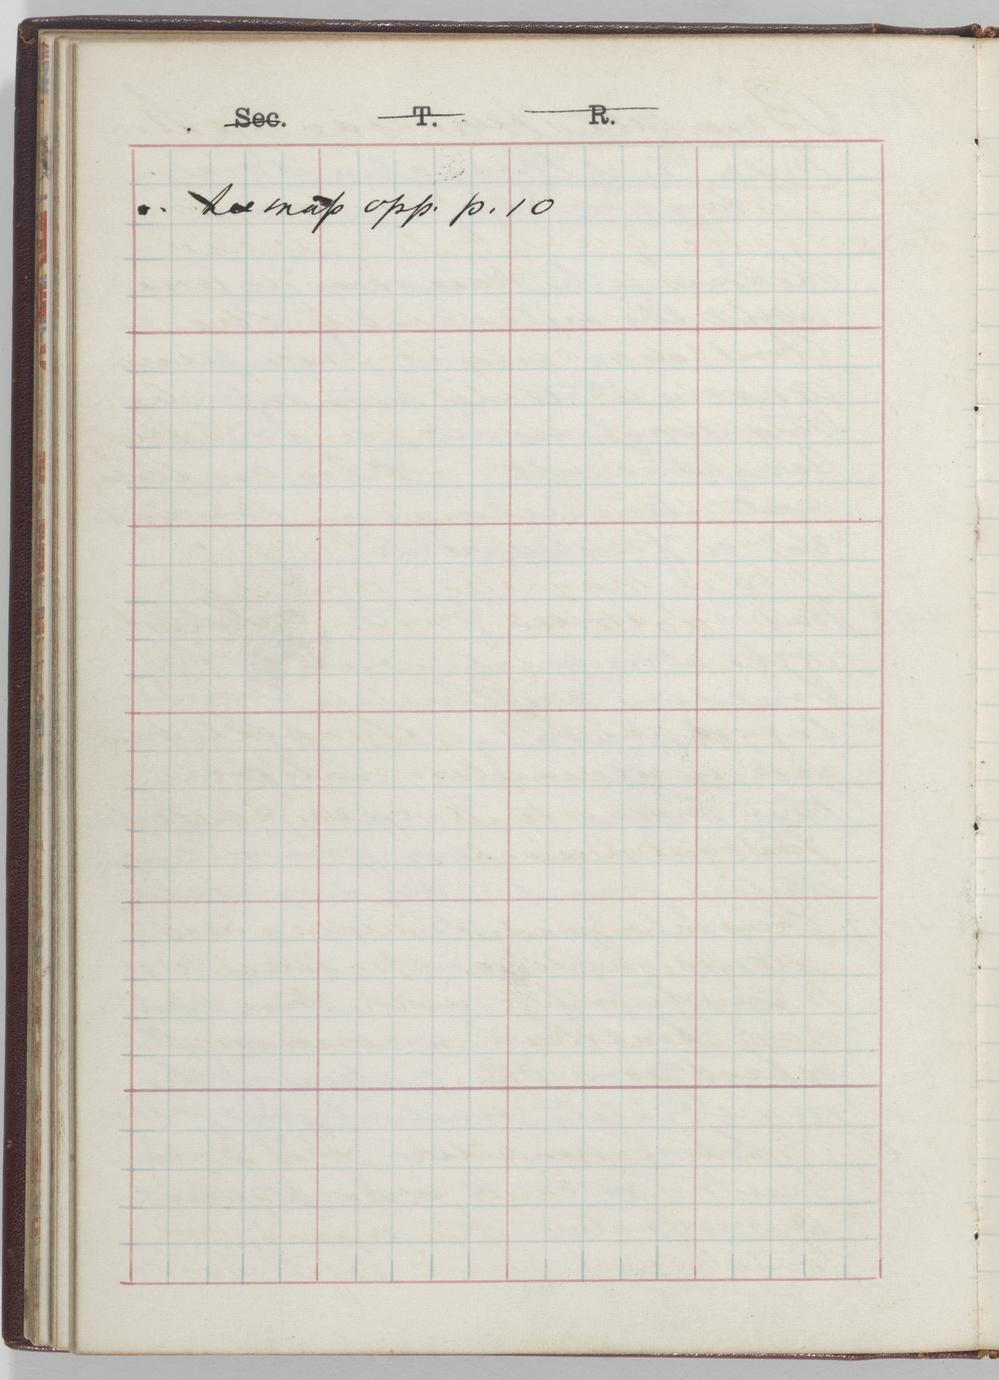 Sec. T. R.
See map opp. p. 10